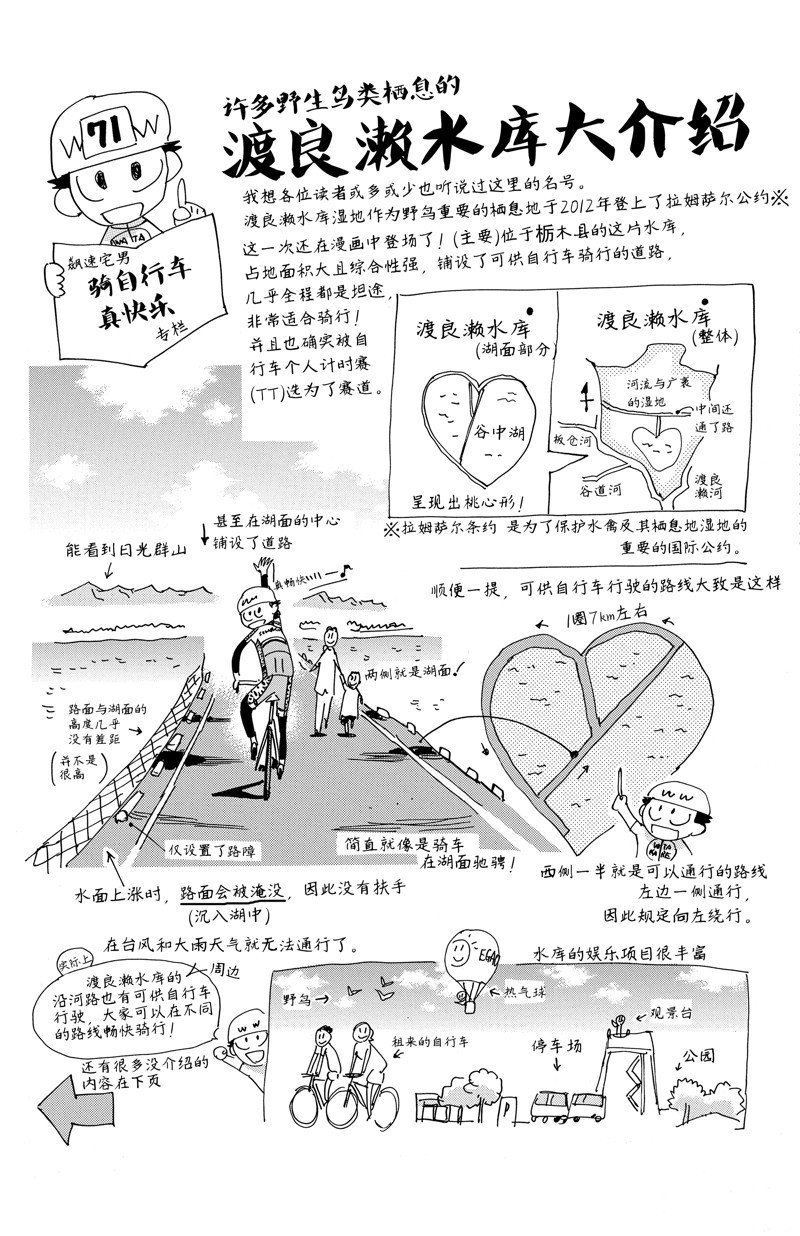 71
许多野生鸟类栖息的
渡良濑水库大介绍
飙速宅男
骑自行车
真快乐
专栏
我想各位读者或多或少也听说过这里的名号。
渡良濑水库湿地作为野鸟重要的栖息地于2012年登上了拉姆萨尔公约※
这一次还在漫画中登场了！(主要)位于栃木县的这片水库，
占地面积大且综合性强，铺设了可供自行车骑行的道路，
几乎全程都是坦途，
非常适合骑行！
并且也确实被自
行车个人计时赛
(TT)选为了赛道。
渡良濑水库
(湖面部分)
谷中湖
呈现出桃心形！
渡良濑水库
(整体)
河流与广袤
的湿地
中间还
通了路
板仓河
谷道河
渡良
濑河
※拉姆萨尔条约 是为了保护水禽及其栖息地湿地的
重要的国际公约。
甚至在湖面的中心
铺设了道路
能看到日光群山
真畅快
两侧就是湖面！
路面与湖面的
高度几乎
没有差距
(并不是
很高)
仅设置了路障
简直就像是骑车
在湖面驰骋！
水面上涨时，路面会被淹没，因此没有扶手
(沉入湖中)
在台风和大雨天气就无法通行了。
顺便一提，可供自行车行驶的路线大致是这样
1圈7km左右
W W
西侧一半就是可以通行的路线
左边一侧通行，
因此规定向左绕行。
实际上
渡良濑水库的周边
沿河路也有可供自行车
行驶，大家可以在不同
的路线畅快骑行！
W W
还有很多没介绍的
内容在下页
水库的娱乐项目很丰富
EGAO
野鸟
热气球
租来的自行车
观景台
停车场
公园
P